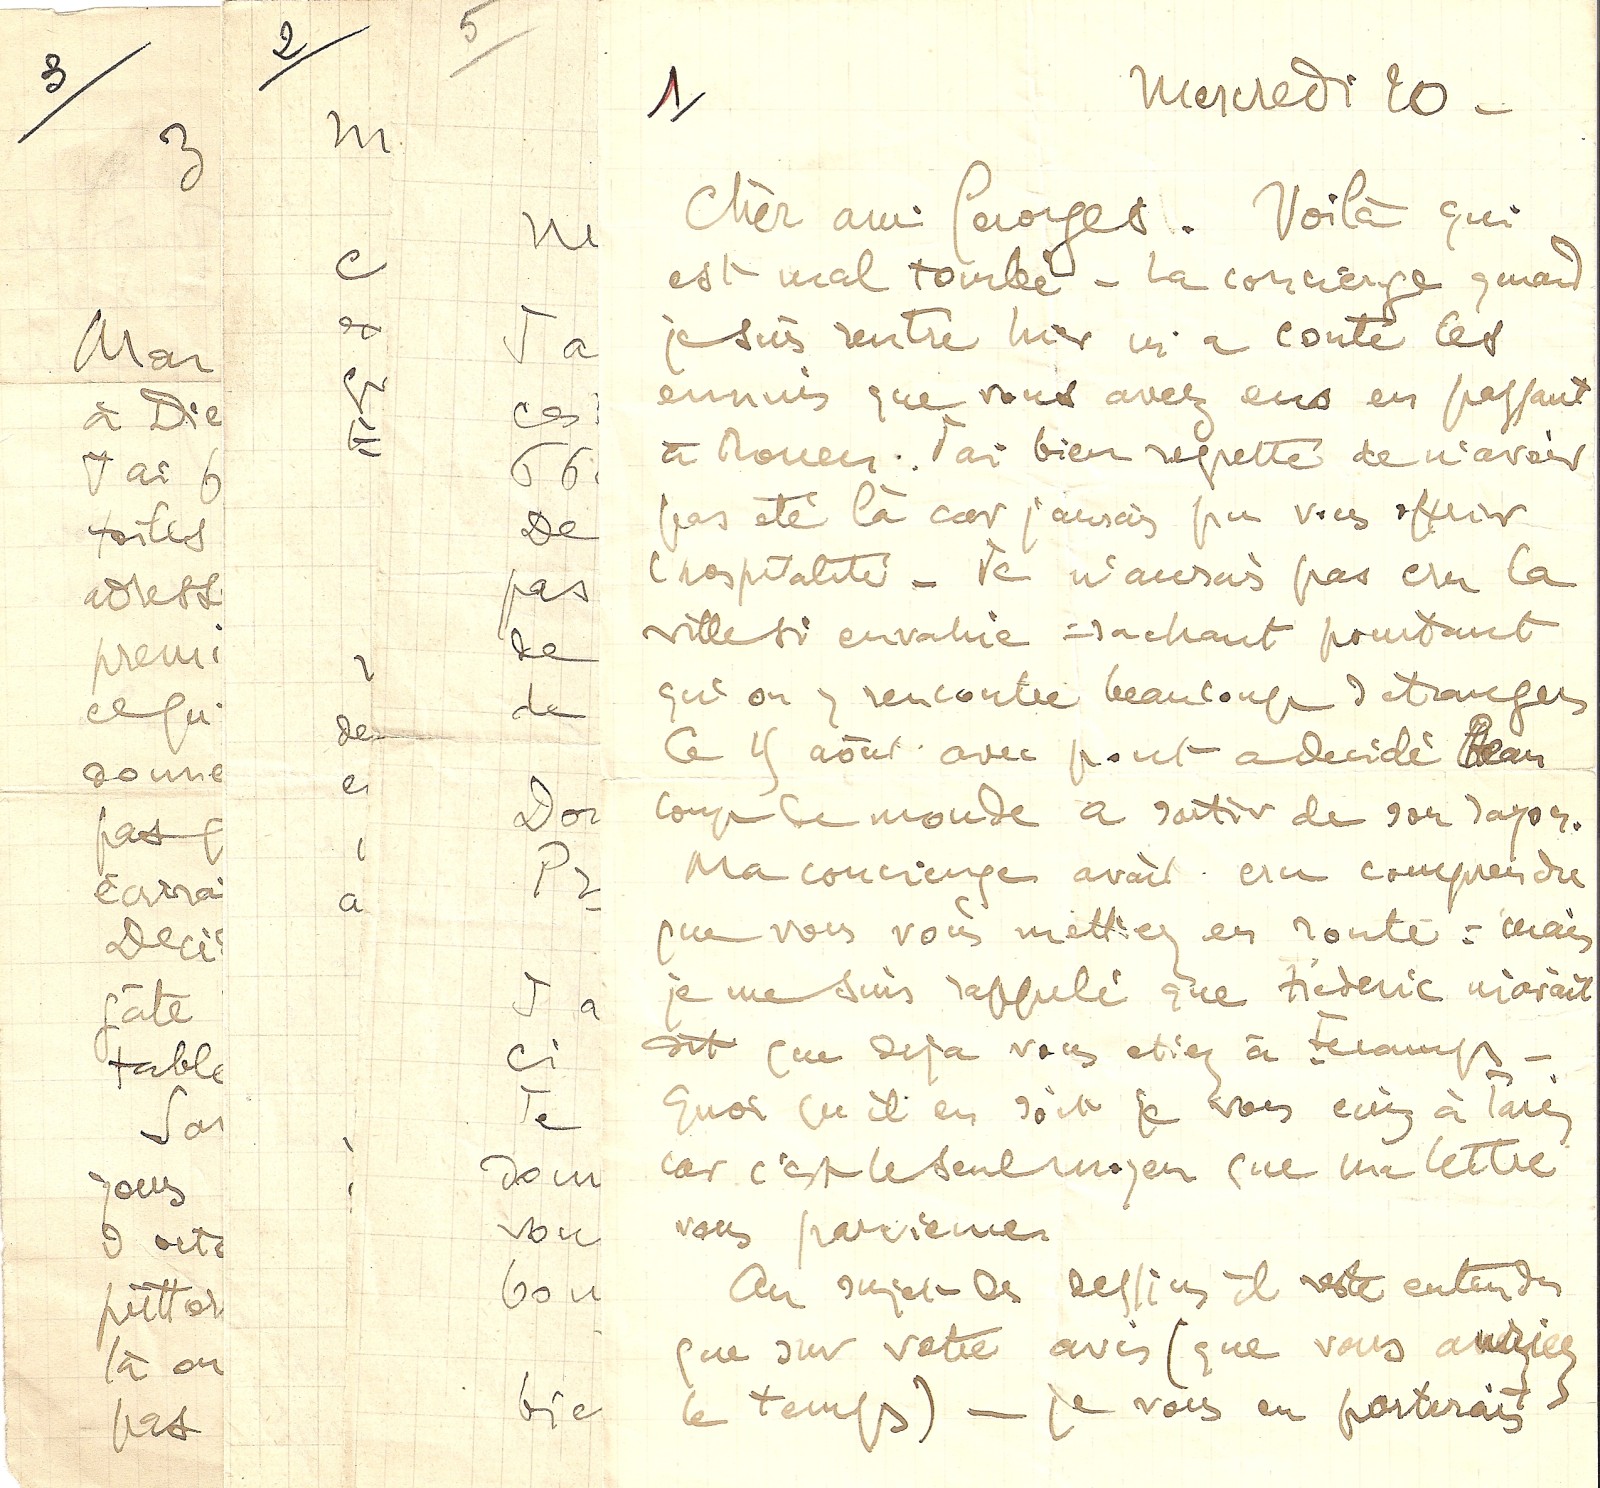 3/
3
Mon
à Die
J'ai b
toiles
adress
premi
ce qui
donne
pas q
écrrai
Déci
gâte
table
Sou
jours
d'oct
pittor
là on
pas
2/
M
C
de
à
5/
M
J'a
ces
66
de
pas
de
de
Don
Pr
J'a
ci
Je
dom
vou
bon
bie
1/
Mercredi 20 -
Cher ami Georges. Voilà qui
est mal tombé - La concierge quand
je suis rentré hier m'a conté les
ennuis que vous avez eus en passant
à Rouen. J'ai bien regretté de n'avoir
pas été là car j'aurais pu vous offrir
l'hospitalité - Je n'aurais pas cru la
ville si envahie = sachant pourtant
qu'on y rencontre beaucoup d'étrangers
Ce 15 août avec pont a décidé beau
coup de monde à sortir de son rayon.
Ma concierge avait cru comprendre
que vous vous mettiez en route = mais
je me suis rappelé que Fréderic m'avait
dit que déja vous étiez à Fécamp -
Quoi qu'il en soit je vous écris à Paris
car c'est le seul moyen que ma lettre
vous parvienne
Au sujet des dessins il reste entendu
que sur votre avis (que vous auriez
le temps) - je vous en porterais